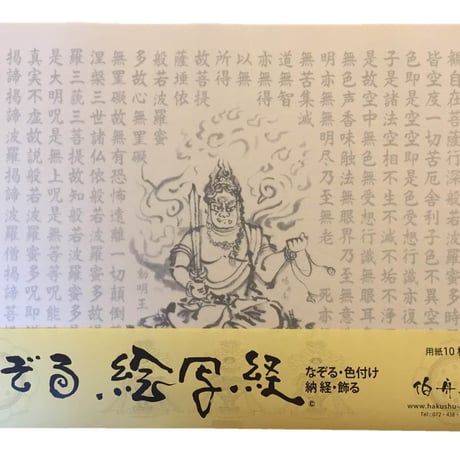 観自在菩薩行深般若波羅蜜多
皆空度一切苦厄舎利子色不異空
色即是空空即是色受想行識亦
子是諸法空相不生不滅不垢不浄
是故空中無色無受想行識無眼耳
無色声香味触法無眼界乃至無意
明亦無無明尽乃至無老 死亦
無苦集滅
道無智
亦無得
以無
所得
故菩提
薩埵依
般若波羅蜜
多故心無罣礙
無罣礙故無有恐怖遠離一切顛倒
涅槃三世諸仏依般若波羅蜜多故
羅三藐三菩提故知般若波羅蜜多
是大明呪是無上呪是無等等呪能
真実不虚故説般若波羅蜜多呪即説
掲諦掲諦波羅掲諦波羅僧掲諦菩
動明王
ぞる 絵写経
©
なぞる・色付け
納経・飾る
用紙10
伯舟
www.hakushu-
Tel:072-438-